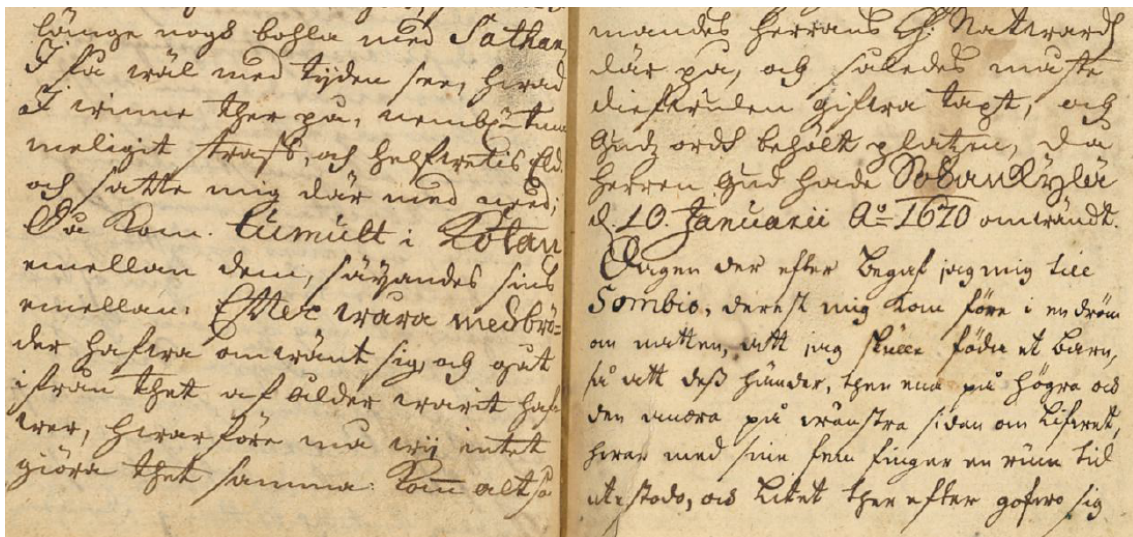 länge nogh bohla med Sathan,
I få wäl med tijden see, hwad
I winne ther på, nembl:
straff, och helfwetis Eld.
och satte mig där med need;
Då kom. tumult i Kåtan
emellan dem, säijandes sins
emellan: Effter wåra medbrö=
der hafwa omwänt sig, och gåt
ifrån thet af ålder warit haf
wer, hwarföre må wij intet
giöra thet samma: Kom altså
mandes Herrans H. Nattward
där på, och således måste
dieflwulen gifwa tapt, och
Gudz ord behölt platzen, då
Herren Gud hade Sodankylä
d. 10. Januarii Aº 1670 omwändt.
Dagen der efter begaf jag mig till
Sombio, derest mig kom före i en dröm
om natten, att jag skulle föda et barn,
så att deß händer, then ena på högra och
den andra på wänstra sidan om lifwet,
hwar med sine fem finger
utestodo, och litet ther efter gofwo sig